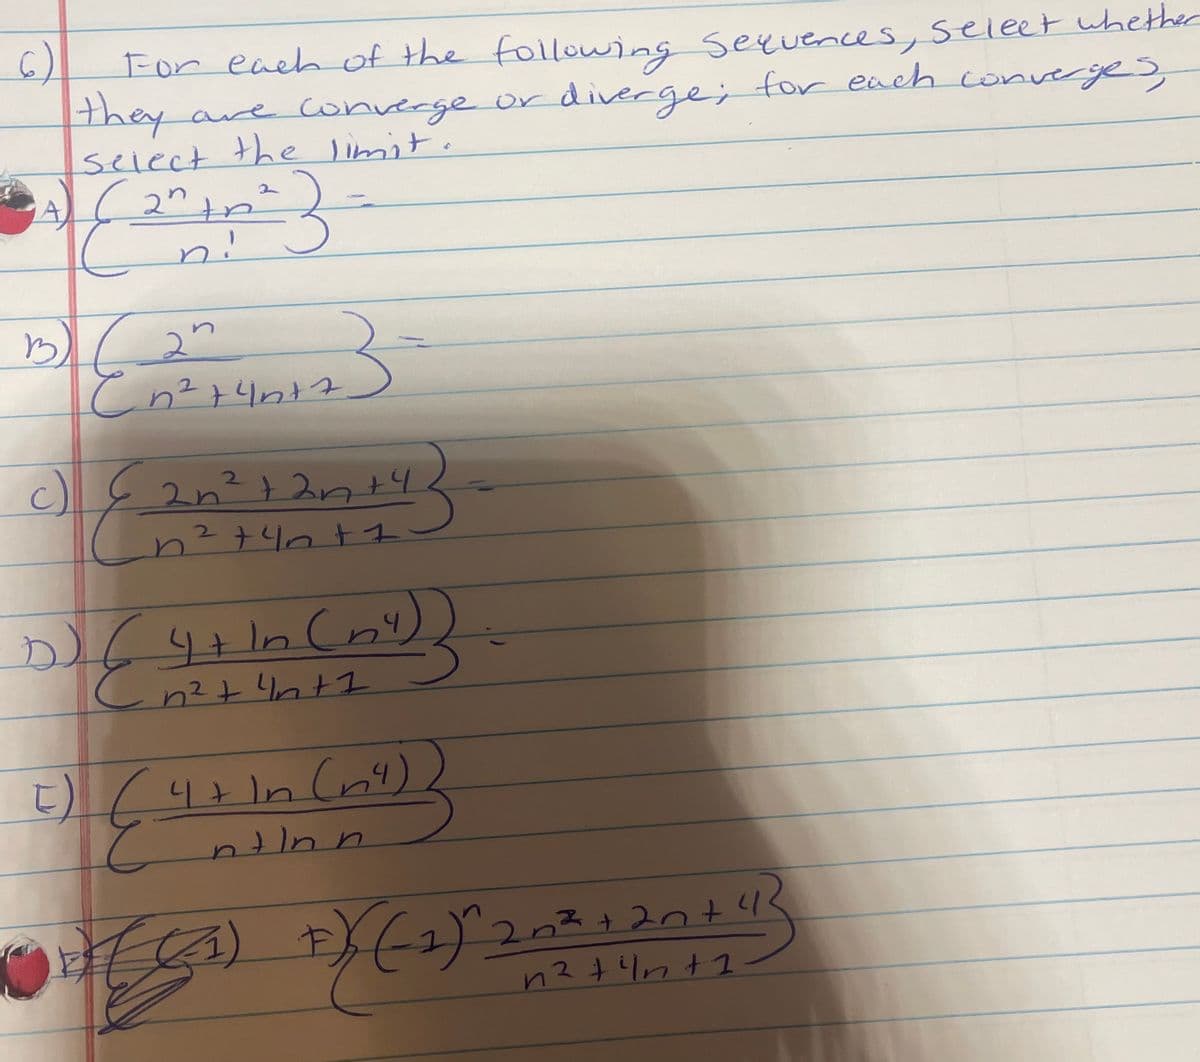 6) For each of the following sequences, select whether
they are converge or diverge; for each converges,
select the limit.
A) { (2ⁿ + n²) / n! } =
B) { 2ⁿ / (n² + 4n + 1) } =
C) { (2n² + 2n + 4) / (n² + 4n + 1) } =
D) { (4 + ln(n⁴)) / (n² + 4n + 1) } =
E) { (4 + ln(n⁴)) / (n + ln n) }
F) { (-1)ⁿ (2n² + 2n + 4) / (n² + 4n + 1) }